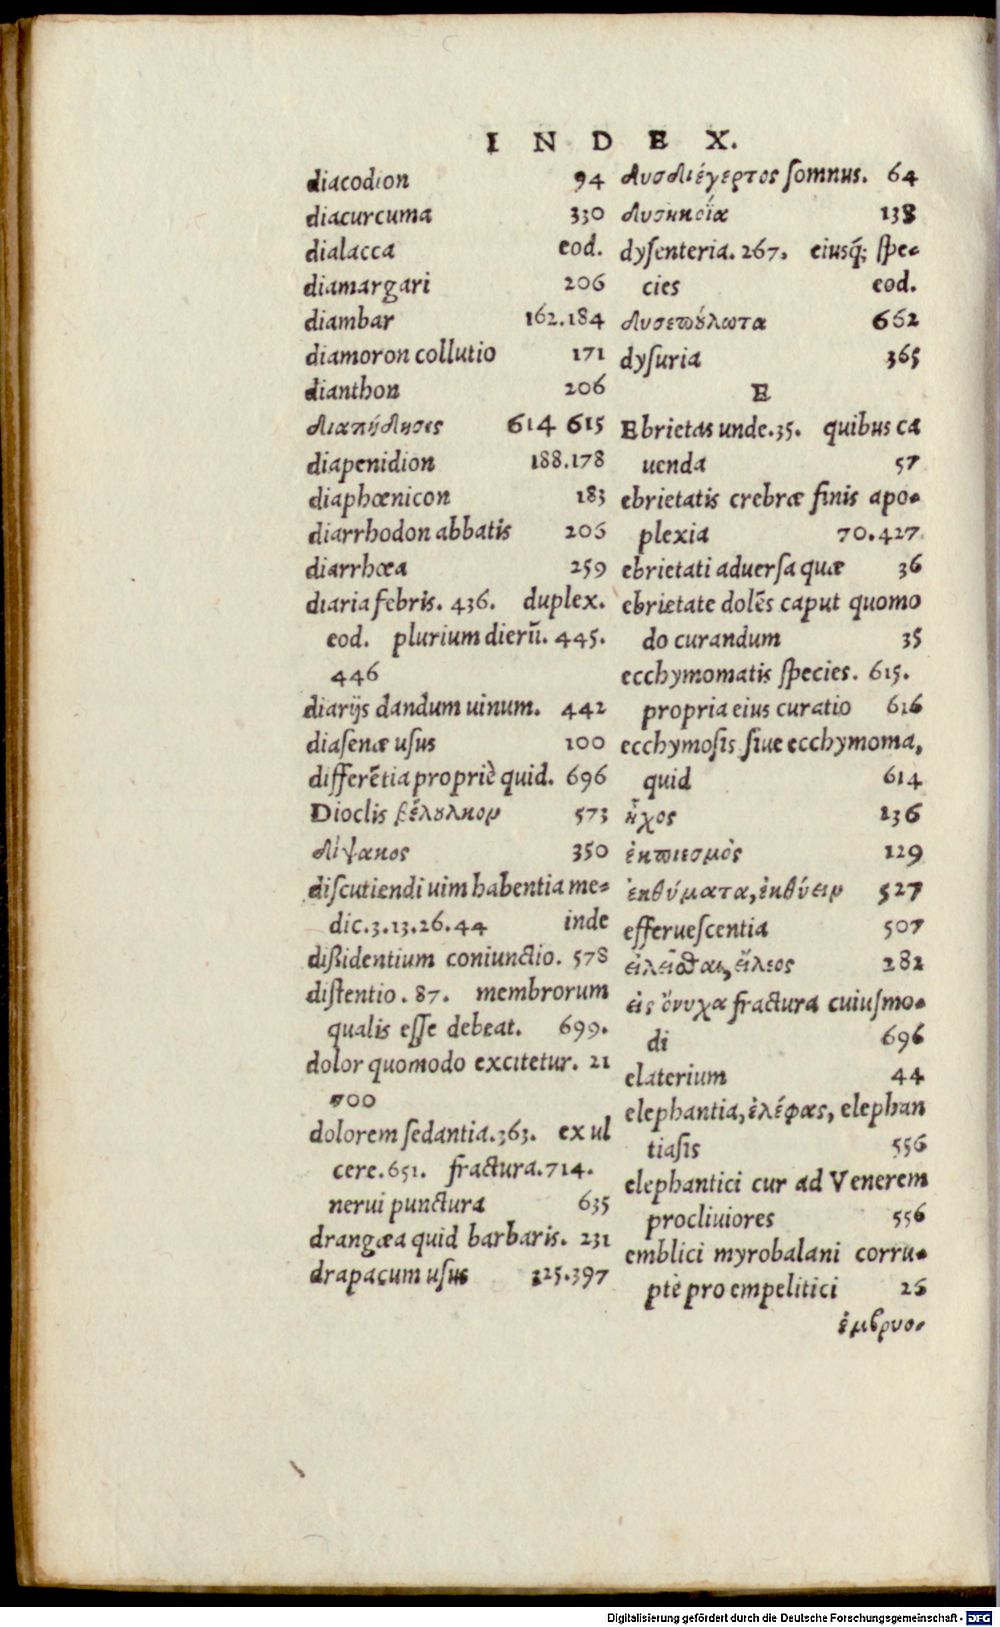 INDEX.
diacodion 94
diacurcuma 330
dialacca eod.
diamargari 206
diambar 162.184
diamoron collutio 171
dianthon 206
διαπήδησις 614 615
diapenidion 188.178
diaphœnicon 183
diarrhodon abbatis 206
diarrhœa 259
diaria febris. 436. duplex.
eod. plurium dierū. 445.
446
diarijs dandum uinum. 442
diasenæ usus 100
differētia propriè quid. 696
Dioclis βέλουλκον 573
δίψακος 350
discutiendi uim habentia me-
dic.3.13.26.44 inde
dißidentium coniunctio. 578
distentio. 87. membrorum
qualis esse debeat. 699.
dolor quomodo excitetur. 21
700
dolorem sedantia.363. ex ul
cere.651. fractura.714.
nerui punctura 635
drangæa quid barbaris. 231
drapacum usus 325.397
δυσδιέγερτος somnus. 64
δυσηκοΐα 138
dysenteria. 267. eiusq́; spe-
cies eod.
δυσεπούλωτα 662
dysuria 365
E
Ebrietas unde.35. quibus ca
uenda 57
ebrietatis crebræ finis apo-
plexia 70.427
ebrietati aduersa quæ 36
ebrietate dolēs caput quomo
do curandum 35
ecchymomatis species. 615.
propria eius curatio 616
ecchymosis siue ecchymoma,
quid 614
ἦχος 136
ἐκπιεσμὸς 129
ἐκθύματα, ἐκθύειν 527
efferuescentia 507
εἰλεῖσθαι, εἴλεος 282
εἰς ὄνυχα fractura cuiusmo-
di 696
elaterium 44
elephantia, ἐλέφας, elephan
tiasis 556
elephantici cur ad Venerem
procliuiores 556
emblici myrobalani corru-
ptè pro empelitici 26
ἐμβρυο-
Digitalisierung gefördert durch die Deutsche Forschungsgemeinschaft - DFG